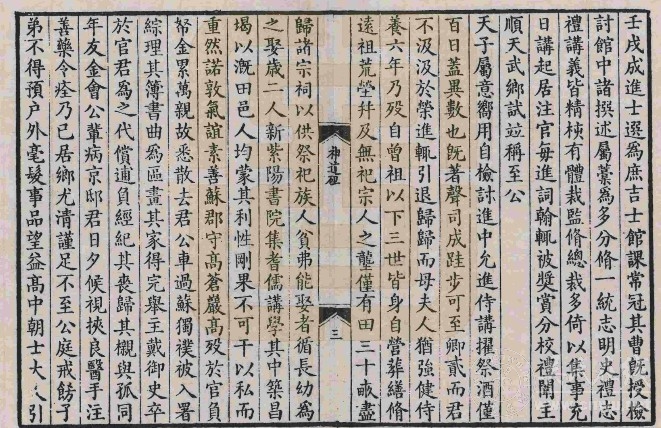 壬戌成進士選為庶吉士館課常冠其曹旣授檢
討館中諸撰述屬藁為多分脩一統志明史禮志
禮講義皆精核有體裁監脩總裁多倚以集事充
日講起居注官每進詞翰輒被奬賞分校禮闈主
順天武鄉試竝稱至公
天子屬意嚮用自檢討進中允進侍講擢祭酒僅
百日蓋異數也旣著聲司成跬步可至卿貳而君
不汲汲於榮進輒引退歸歸而母夫人猶強健侍
養六年乃歿自曾祖以下三世皆身自營葬繕脩
遠祖荒塋幷及無祀宗人之壟僅有田三十畝盡
神道碑
三
歸諸宗祠以供祭祀族人貧弗能娶者循長幼為
之娶歲二人新紫陽書院集耆儒講學其中築昌
堨以漑田邑人均蒙其利性剛果不可干以私而
重然諾敦氣誼素善蘇郡守高蒼巖高歿於官負
帑金累萬親故悉散去君公車過蘇獨襆被入署
綜理其簿書曲為區畫其家得完舉主戴御史卒
於官君為之代償逋負經紀其喪歸其櫬與孤同
年友金會公輩病京邸君日夕候視挾良醫手注
善藥令痊乃已居鄉尤清謹足不至公庭戒飭子
弟不得預户外毫髮事品望益高中朝士大引